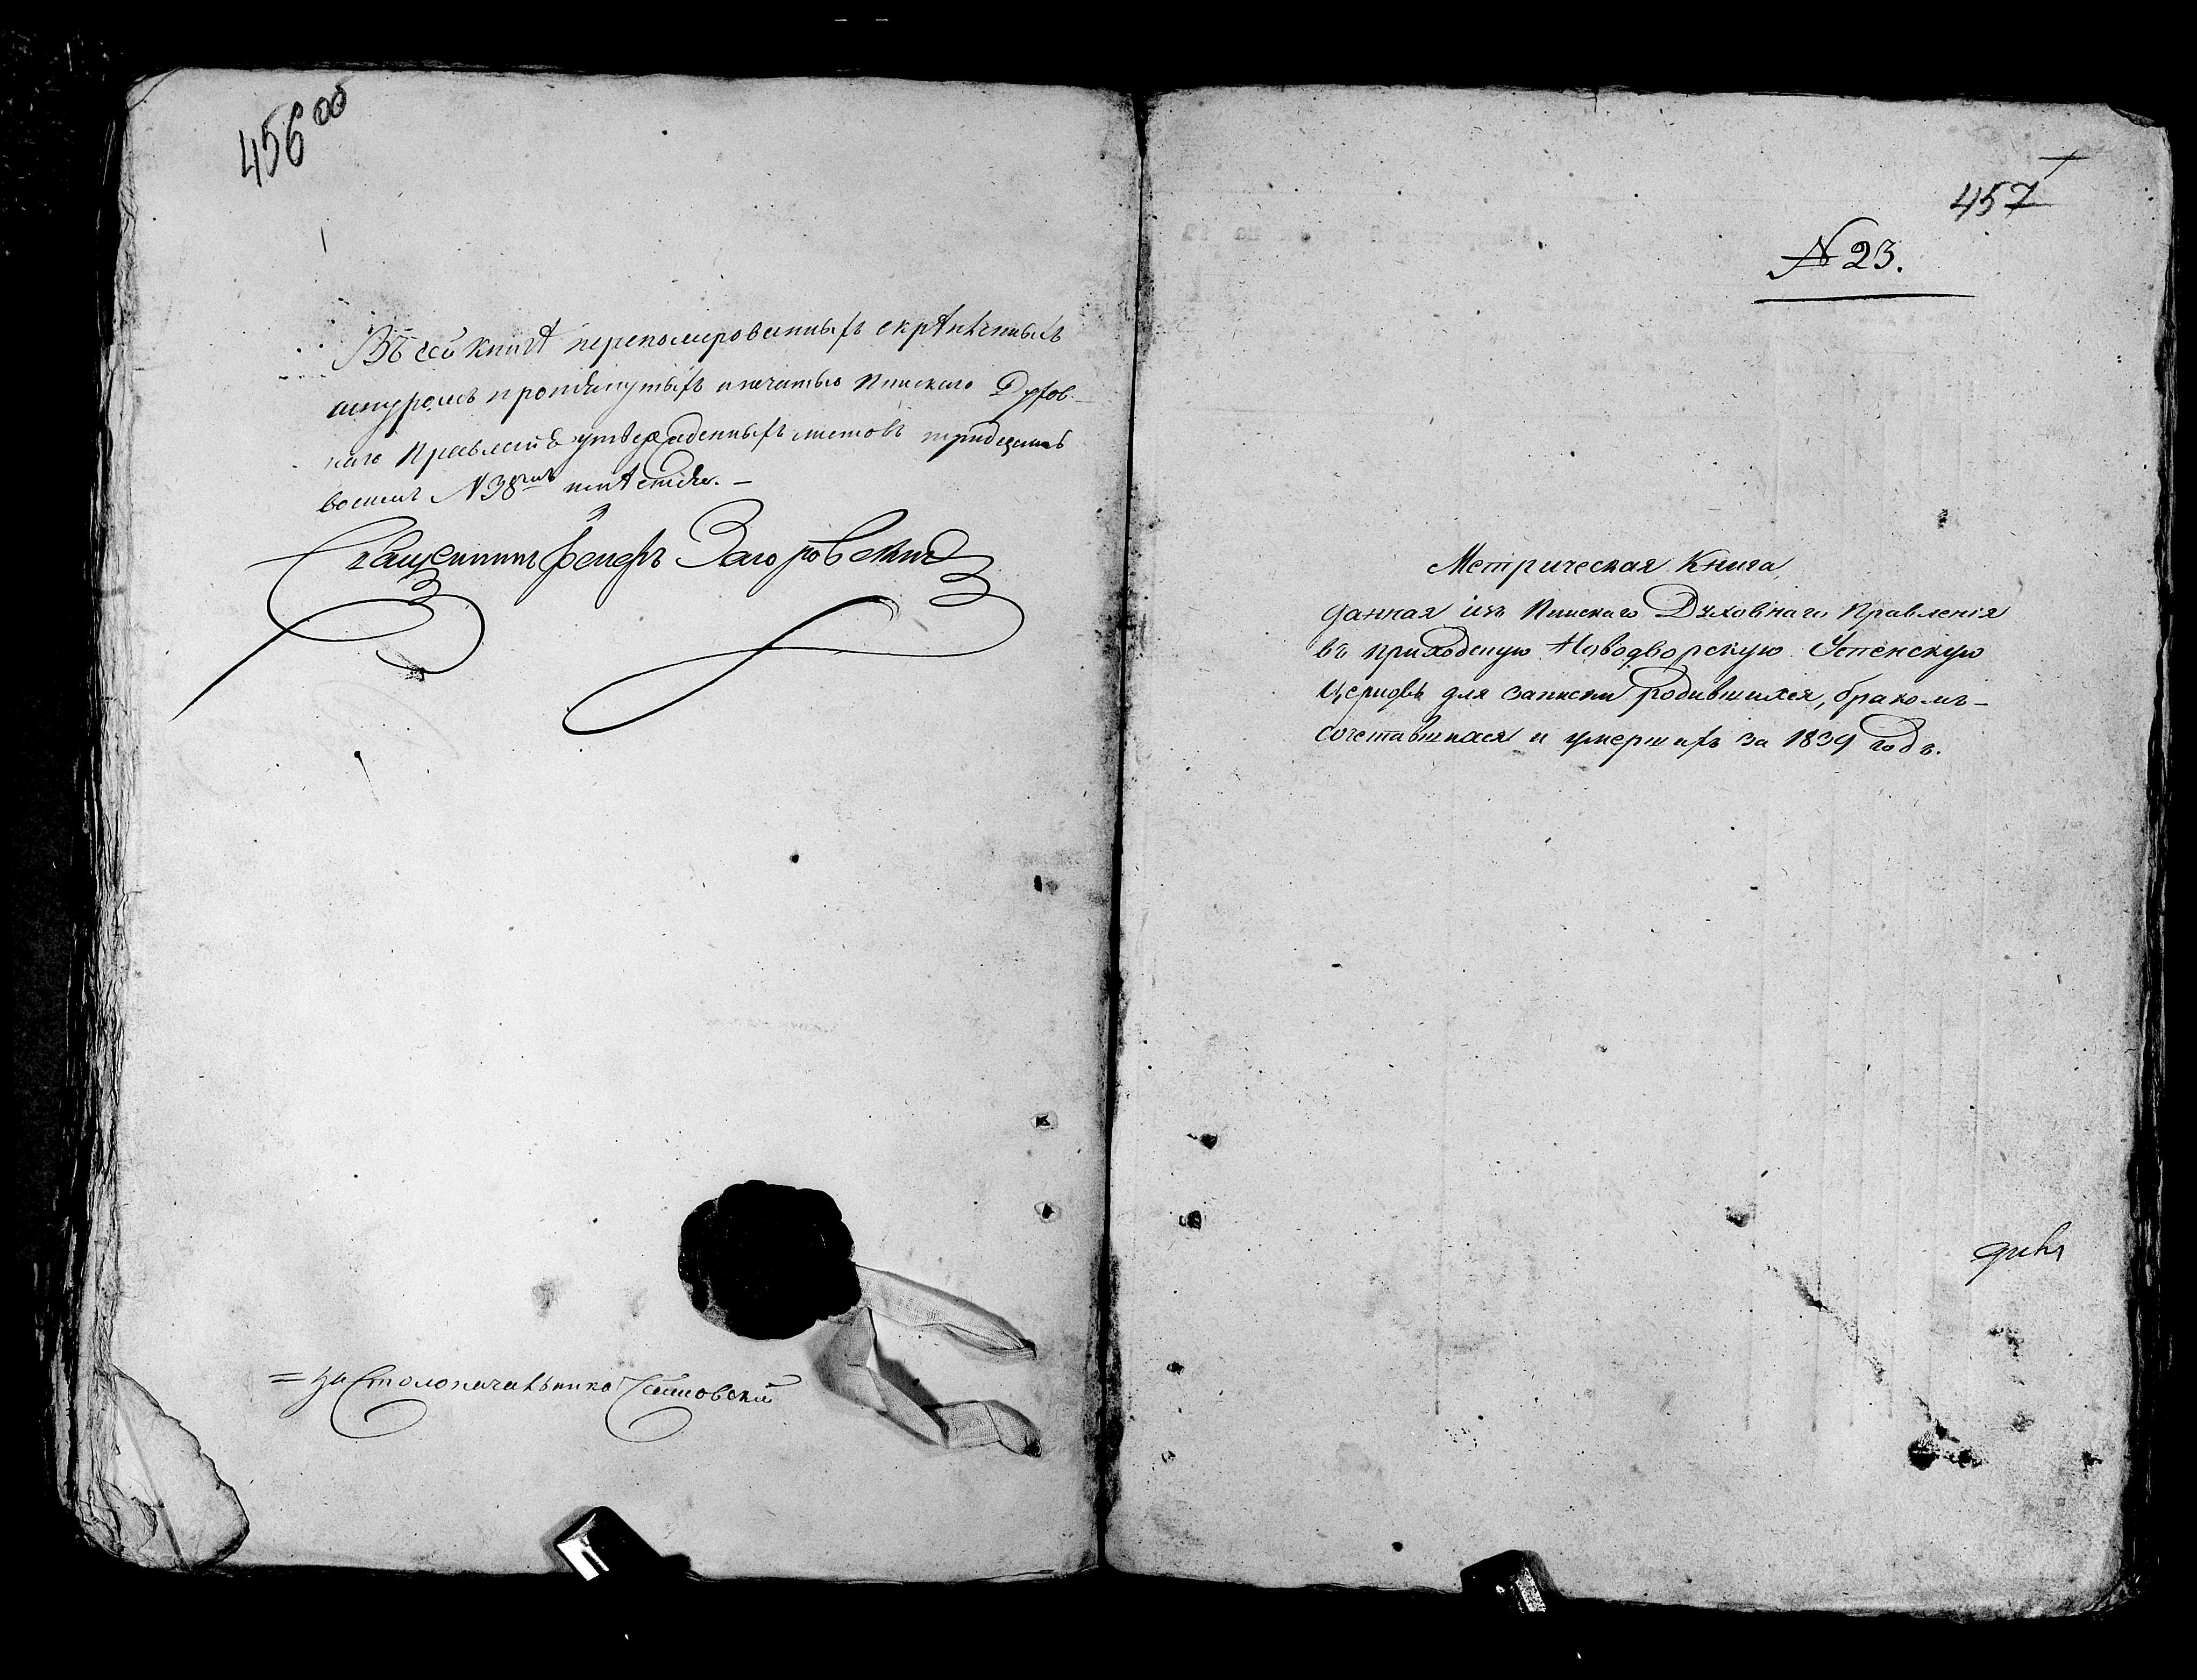 456 об
Въ сей книгѣ перенумерованныхъ скрѣпленныхъ
шнуромъ протянутыхъ и печатью Пинскаго Духов-
наго Правленія утвержденныхъ листовъ тридцать
восемь N 38мь
Священникъ Загоровскій
= За Столоначальника
457
N 23.
Метрическая Книга,
данная изъ Пинскаго Духовнаго Правленія
въ приходскую Новодворскую Успенскую
Церковь для записки родившихся, бракомъ-
сочетавшихся и умершихъ за 1839 годъ.